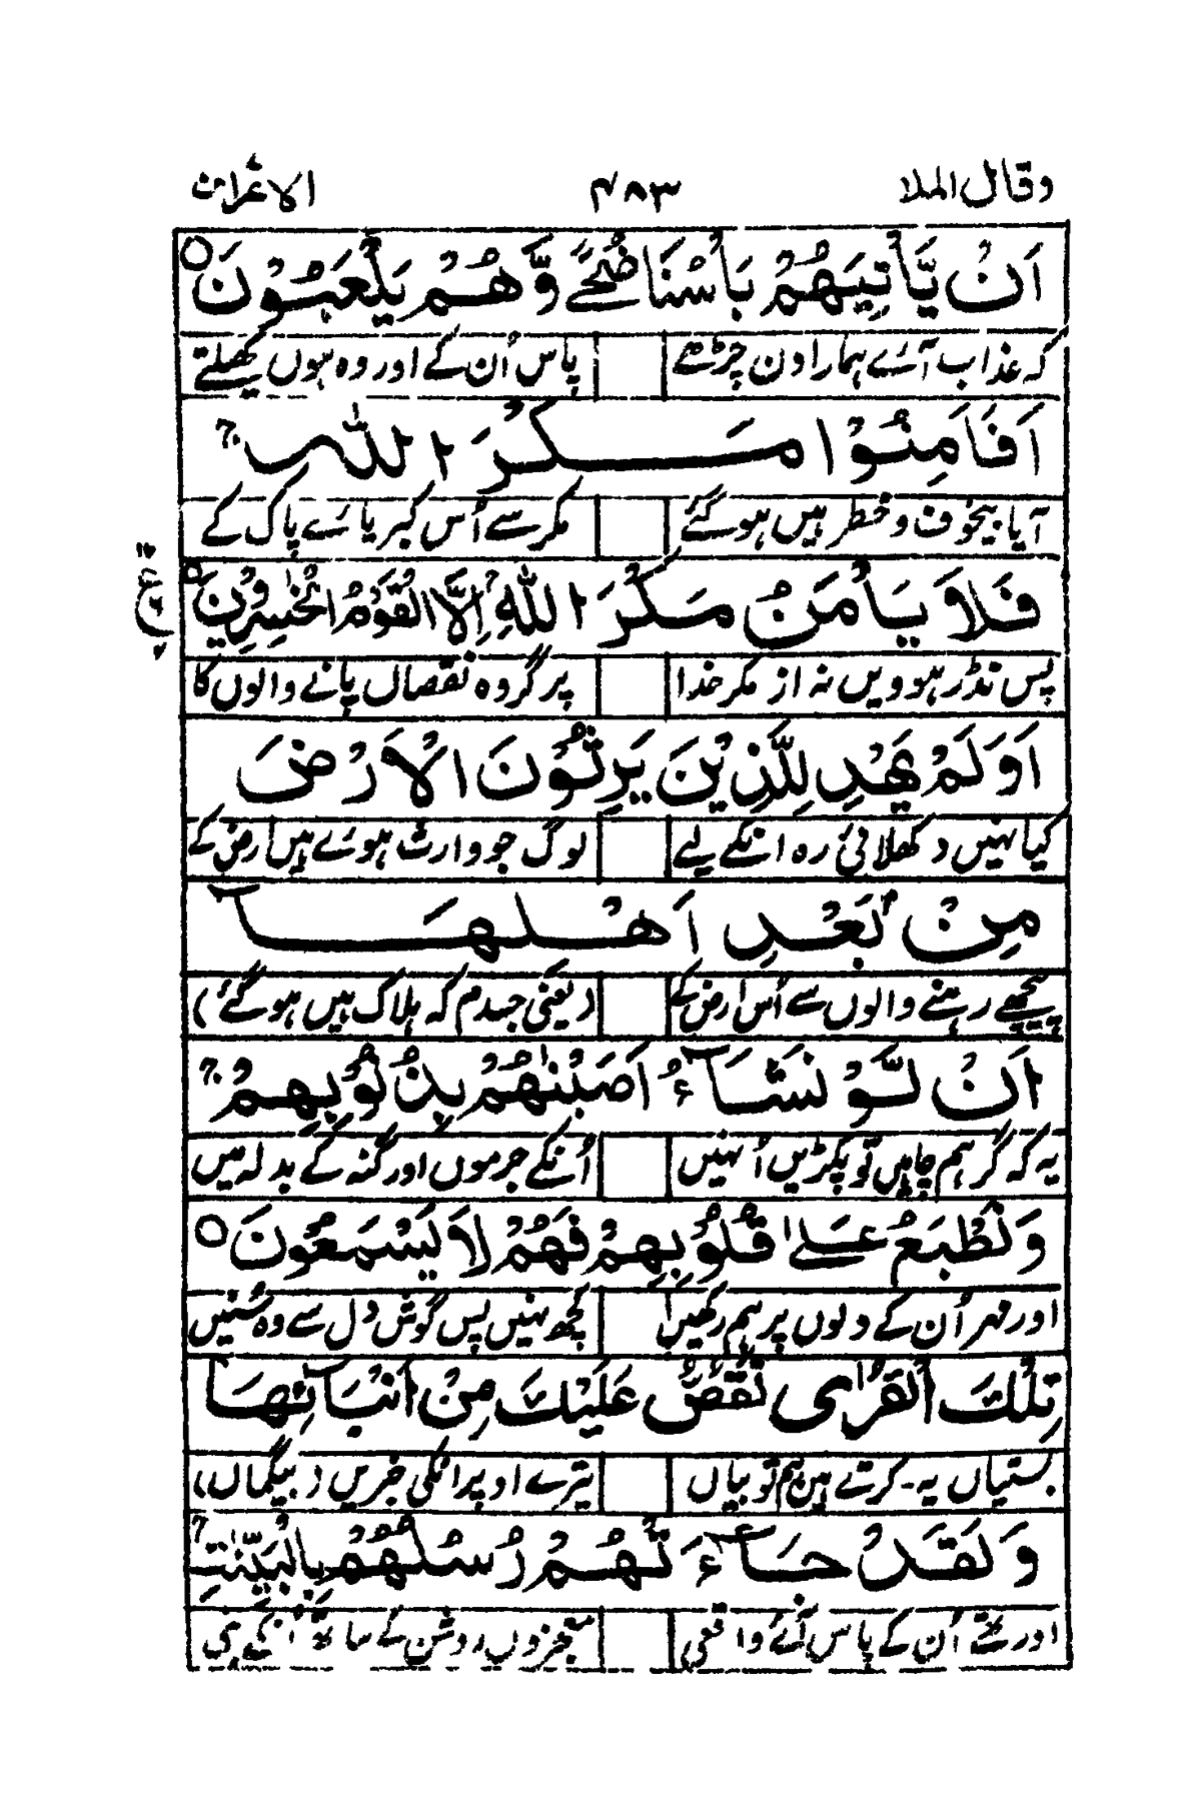 وقال الملا ۴۸۳ الاعراف
اَنْ يَّاْتِيَهُمْ بَاْسُنَا ضُحًى وَّهُمْ يَلْعَبُوْنَ ○
کہ عذاب آئے ہمارا دن چڑھے پاس اُن کے اور وہ ہوں کھیلتے
اَفَاَمِنُوْا مَكْرَ اللّٰهِ ۚ
آیا بیخوف و خطر ہیں ہو گئے مکر سے اُس کبریائے پاک کے
فَلَا يَاْمَنُ مَكْرَ اللّٰهِ اِلَّا الْقَوْمُ الْخٰسِرُوْنَ ○
پس نڈر ہوویں نہ از مکر خدا پر گروہ نقصاں پانے والوں کا
اَوَلَمْ يَهْدِ لِلَّذِيْنَ يَرِثُوْنَ الْاَرْضَ
کیا نہیں دکھلائی رہ انکے لیے لوگ جو وارث ہوئے ہیں ارض کے
مِنْۢ بَعْدِ اَهْلِهَاۤ
پیچھے رہنے والوں سے اُس ارض کے (یعنی جسدم کہ ہلاک ہیں ہو گئے)
اَنْ لَّوْ نَشَآءُ اَصَبْنٰهُمْ بِذُنُوْبِهِمْ ۚ
یہ کہ گر ہم چاہیں تو پکڑیں اُنہیں اُنکے جرموں اور گنہ کے بدلہ میں
وَنَطْبَعُ عَلٰى قُلُوْبِهِمْ فَهُمْ لَا يَسْمَعُوْنَ ○
اور مہر اُن کے دلوں پر ہم رکھیں کچھ نہیں پس گوش دل سے وہ سُنیں
تِلْكَ الْقُرٰى نَقُصُّ عَلَيْكَ مِنْ اَنْۢبَآئِهَا
بستیاں یہ۔ کرتے ہیں ہم تو بیاں تیرے اوپر انکی خبریں (بیگماں)
وَلَقَدْ جَآءَتْهُمْ رُسُلُهُمْ بِالْبَيِّنٰتِ ۚ
اور تھے اُن کے پاس آئے واقعی معجزوں روشن کے ساتھ انکے نبی